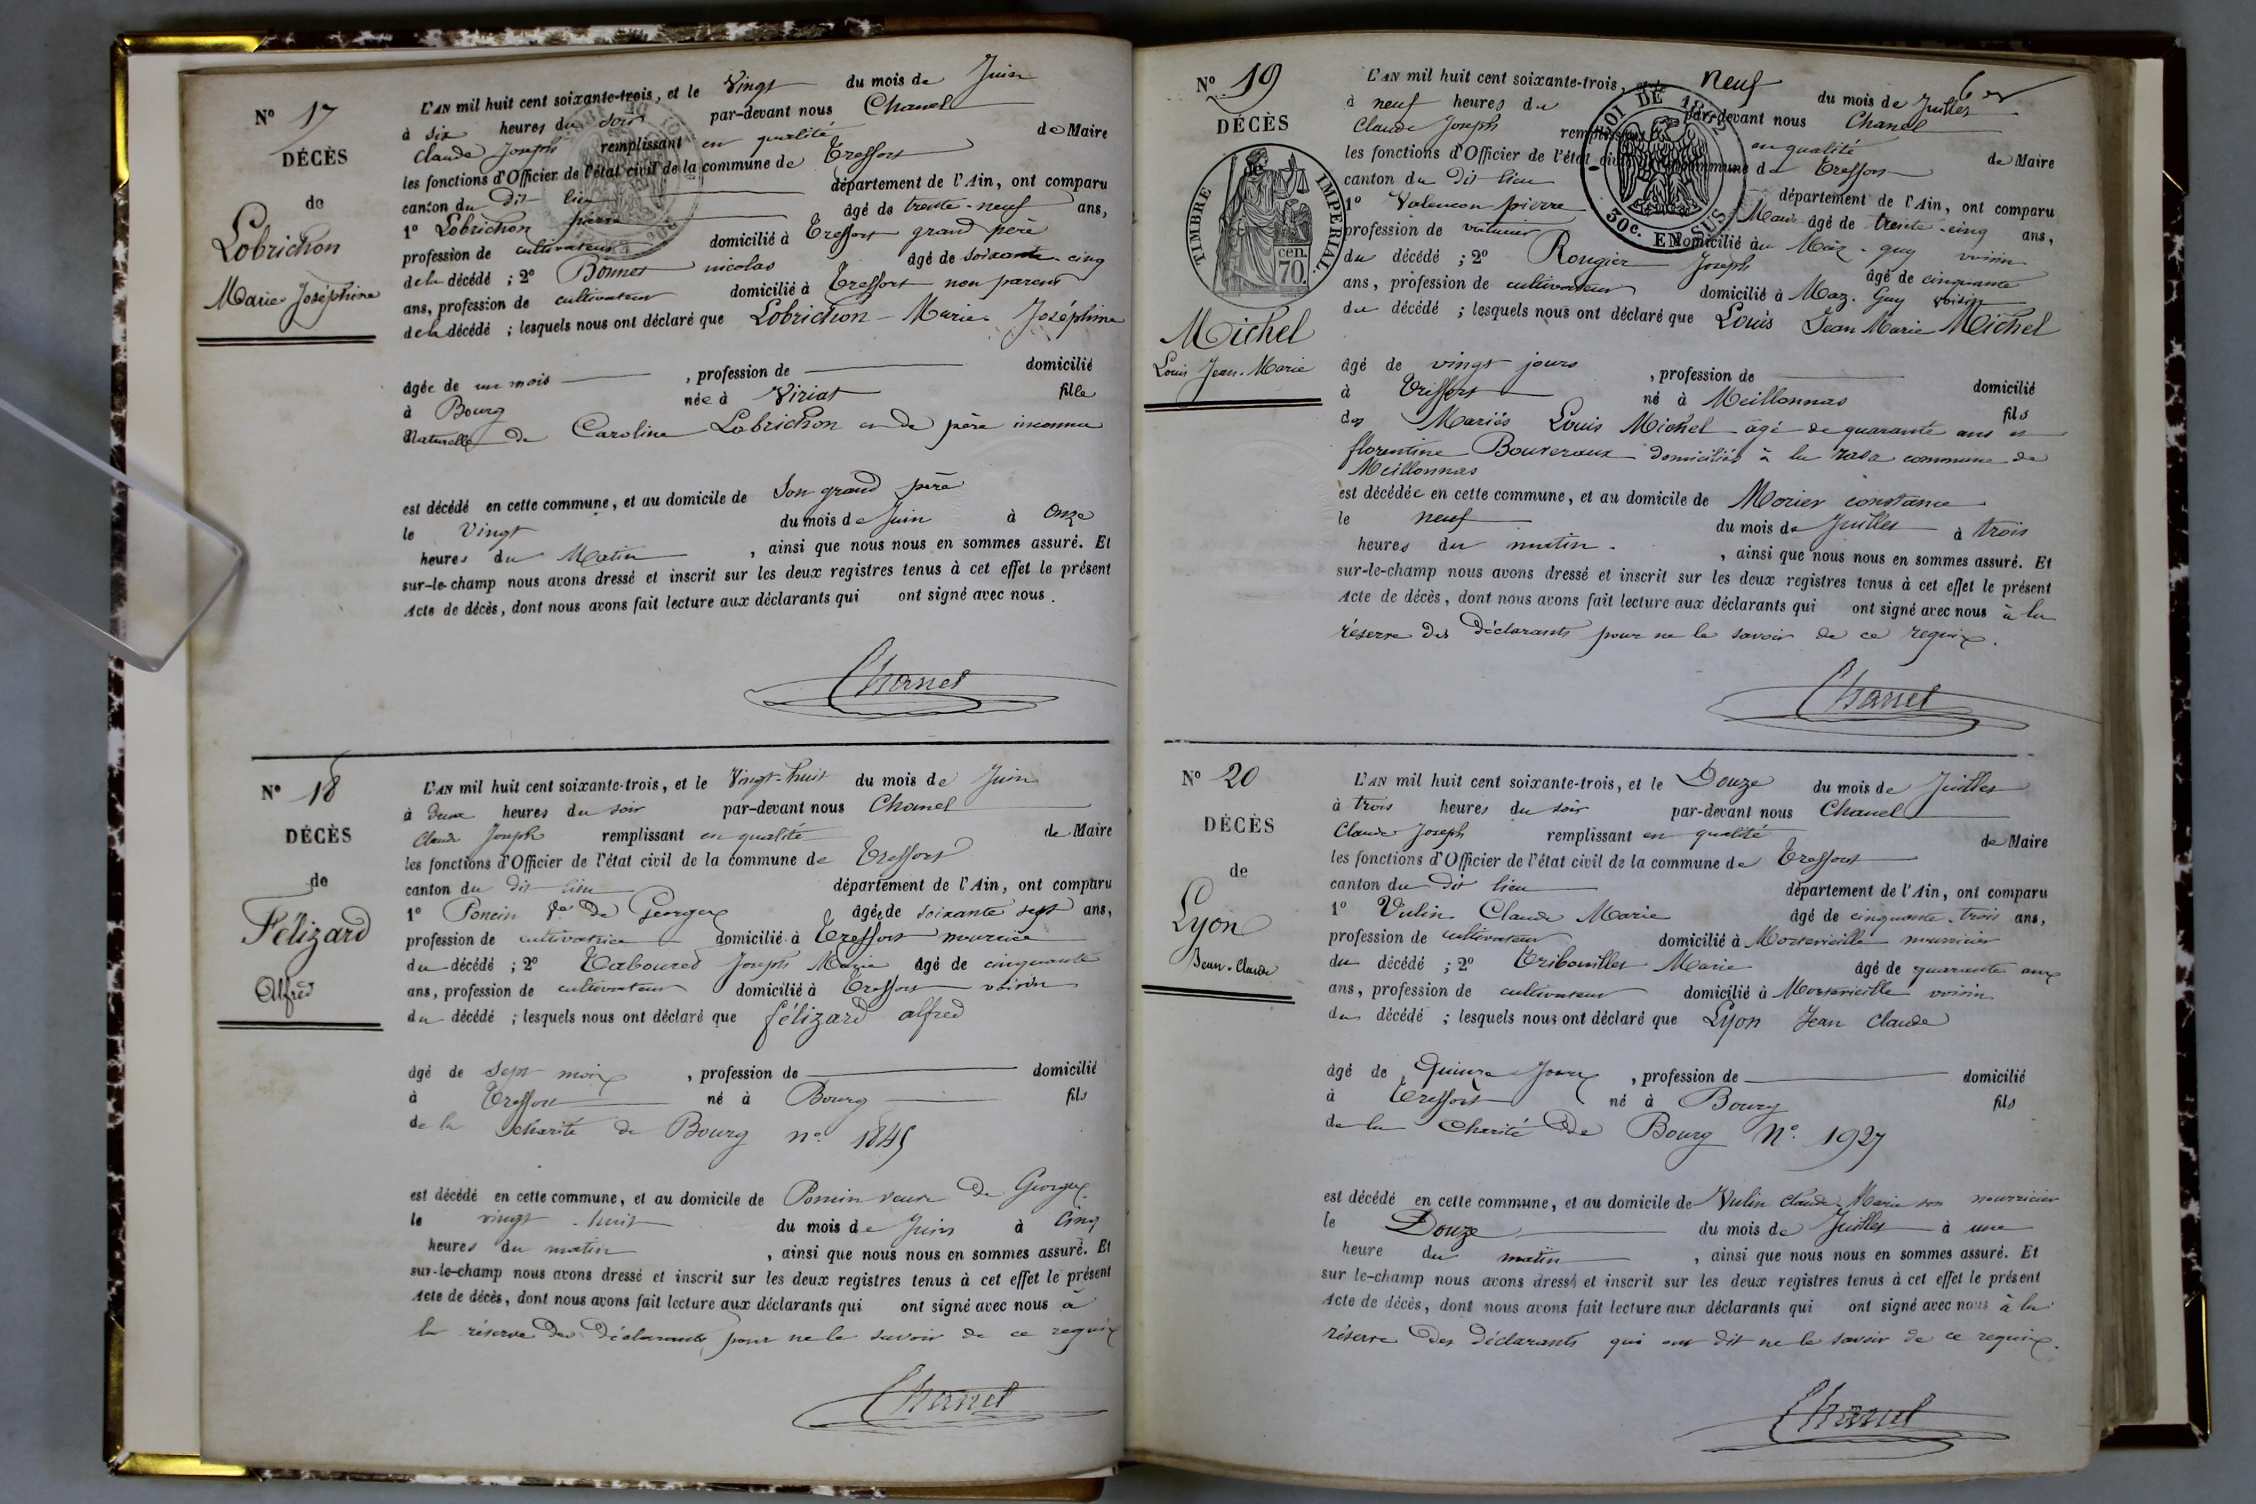 N° 17
DÉCÈS
de
Lobrichon
Marie Joséphine
L'AN mil huit cent soixante-trois, et le Vingt du mois de Juin
à six heures du soir par-devant nous Chanel
Claude Joseph remplissant en qualité de Maire
les fonctions d'Officier de l'état civil de la commune de Treffort
canton du dit lieu département de l'Ain, ont comparu
1° Lobrichon pierre âgé de trente-neuf ans,
profession de cultivateur domicilié à Treffort grand père
de la décédé ; 2° Bonnet nicolas âgé de soixante cinq
ans, profession de cultivateur domicilié à Treffort non parent
de la décédé ; lesquels nous ont déclaré que Lobrichon Marie Joséphine
âgée de un mois , profession de domicilié
à Bourg née à Viriat fille
Naturelle de Caroline Lobrichon et de père inconnu
est décédé en cette commune, et au domicile de Son grand père
le Vingt du mois de Juin à Onze
heures du Matin , ainsi que nous nous en sommes assuré. Et
sur-le-champ nous avons dressé et inscrit sur les deux registres tenus à cet effet le présent
Acte de décès, dont nous avons fait lecture aux déclarants qui ont signé avec nous.
Chanel
N° 18
DÉCÈS
de
Félizard
Alfred
L'AN mil huit cent soixante-trois, et le Vingt-huit du mois de Juin
à deux heures du soir par-devant nous Chanel
Claude Joseph remplissant en qualité de Maire
les fonctions d'Officier de l'état civil de la commune de Treffort
canton du dit lieu département de l'Ain, ont comparu
1° Poncin Ve de Georges âgée de soixante sept ans,
profession de cultivatrice domicilié à Treffort nourrice
du décédé ; 2° Tabouret Joseph Marie âgé de cinquante
ans, profession de cultivateur domicilié à Treffort voisin
du décédé ; lesquels nous ont déclaré que félizard alfred
âgé de sept mois , profession de domicilié
à Treffort né à Bourg fils
de la charité de Bourg n° 1845
est décédé en cette commune, et au domicile de Poncin veuve De Georges
le vingt-huit du mois de Juin à Cinq
heures du matin , ainsi que nous nous en sommes assuré. Et
sur-le-champ nous avons dressé et inscrit sur les deux registres tenus à cet effet le présent
Acte de décès, dont nous avons fait lecture aux déclarants qui ont signé avec nous à
la réserve des déclarants pour ne le savoir de ce requis
Chanel
N° 19
DÉCÈS
de
TIMBRE IMPERIAL.
cen. 70.
Michel
Louis Jean-Marie
LOI DE 1862
30c. EN SUS
L'AN mil huit cent soixante-trois, et le Neuf du mois de Juillet
à neuf heures du par-devant nous Chanel
Claude Joseph remplissant en qualité de Maire
les fonctions d'Officier de l'état civil de la commune de Treffort
canton du dit lieu département de l'Ain, ont comparu
1° Valencon pierre Marie âgé de trente-cinq ans,
profession de voiturier domicilié au Maz-guy voisin
du décédé ; 2° Rougier Joseph âgé de cinquante
ans, profession de cultivateur domicilié à Maz-Guy voisin
du décédé ; lesquels nous ont déclaré que Louis Jean Marie Michel
âgé de vingt jours , profession de domicilié
à Treffort né à Meillonnas fils
des Mariés Louis Michel agé de quarante ans et
florentine Bouveroux domiciliés à la raza commune de
Meillonnas
est décédée en cette commune, et au domicile de Morier constance
le neuf du mois de Juillet à trois
heures du matin. , ainsi que nous nous en sommes assuré. Et
sur-le-champ nous avons dressé et inscrit sur les deux registres tenus à cet effet le présent
Acte de décès, dont nous avons fait lecture aux déclarants qui ont signé avec nous à la
réserve des Déclarants pour ne le savoir de ce requis.
Chanel
N° 20
DÉCÈS
de
Lyon
Jean-Claude
L'AN mil huit cent soixante-trois, et le Douze du mois de Juillet
à trois heures du soir par-devant nous Chanel
Claude Joseph remplissant en qualité de Maire
les fonctions d'Officier de l'état civil de la commune de Treffort
canton du dit lieu département de l'Ain, ont comparu
1° Vulin Claude Marie âgé de cinquante-trois ans,
profession de cultivateur domicilié à Montervieille nourricier
du décédé ; 2° Tribouillet Marie âgé de quarante aux
ans, profession de cultivateur domicilié à Montervieille voisin
du décédé ; lesquels nous ont déclaré que Lyon Jean Claude
âgé de Quinze Jours , profession de domicilié
à Treffort né à Bourg fils
de la Charité De Bourg N° 1927
est décédé en cette commune, et au domicile de Vulin Claude-Marie son nourricier
le Douze du mois de Juillet à une
heure du matin , ainsi que nous nous en sommes assuré. Et
sur le-champ nous avons dressé et inscrit sur les deux registres tenus à cet effet le présent
Acte de décès, dont nous avons fait lecture aux déclarants qui ont signé avec nous à la
réserve des déclarants qui ont dit ne le savoir de ce requis.
Chanel